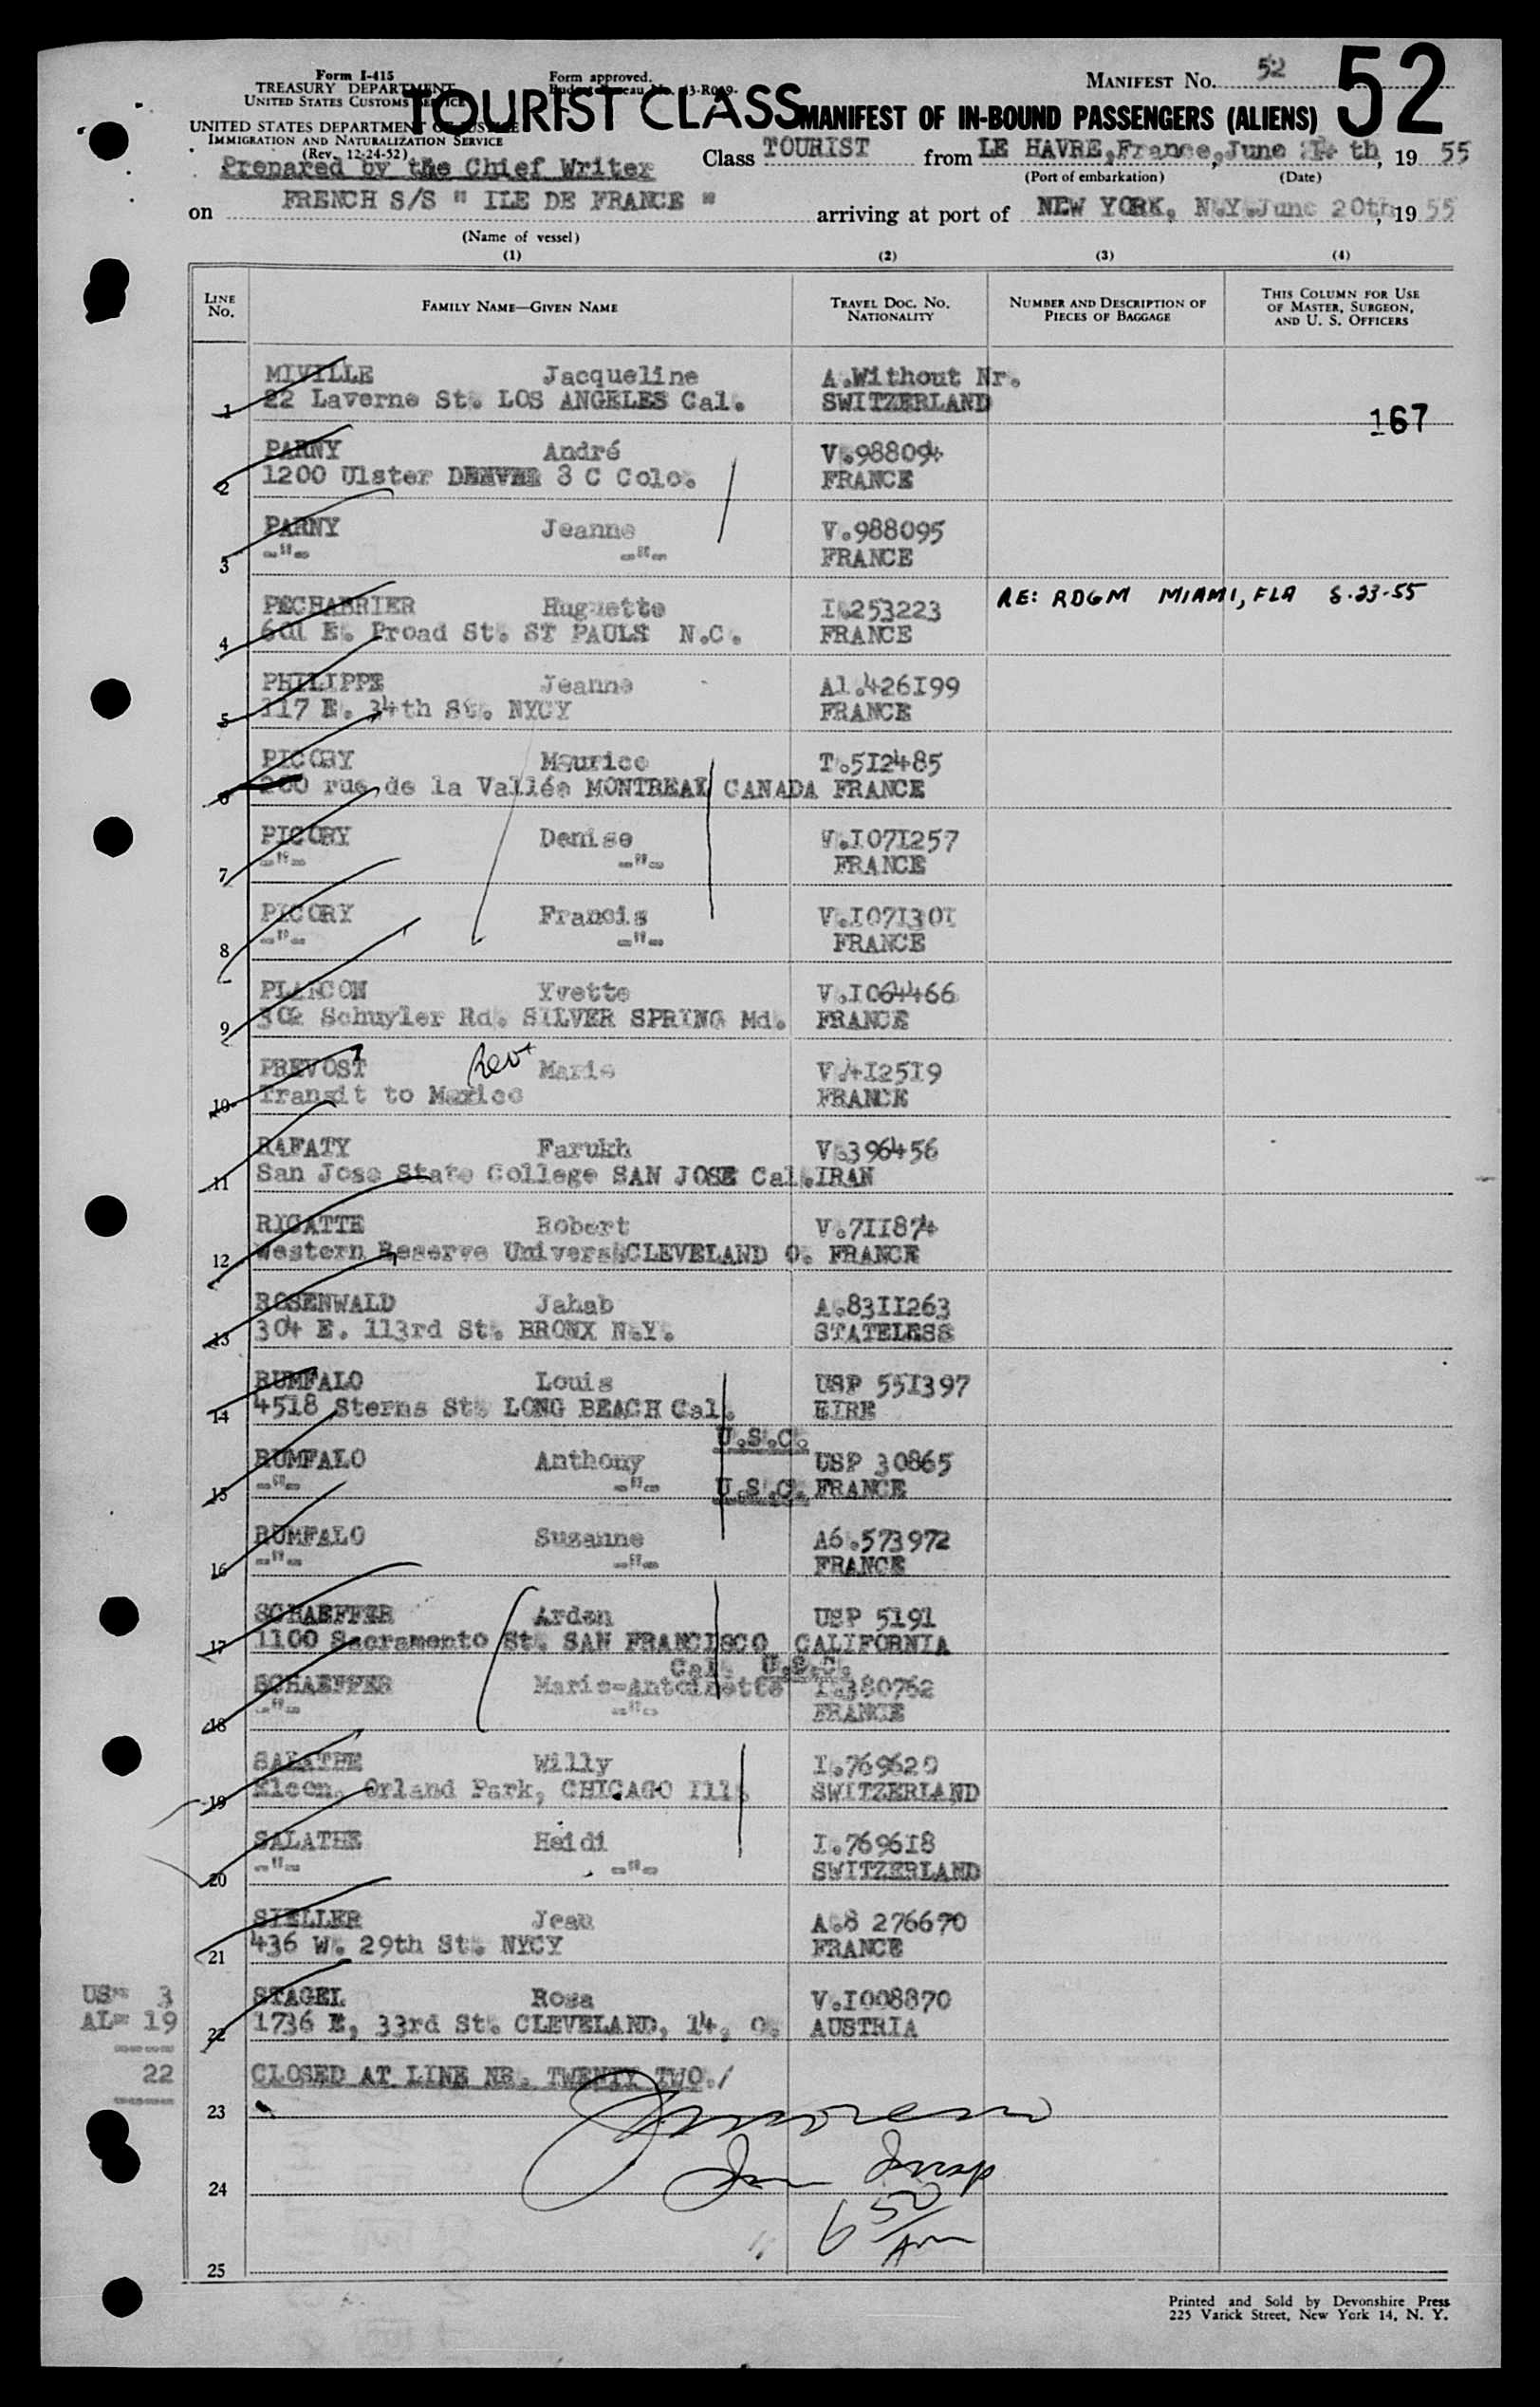 Form I-415
TREASURY DEPARTMENT
UNITED STATES CUSTOMS SERVICE
UNITED STATES DEPARTMENT OF JUSTICE
IMMIGRATION AND NATURALIZATION SERVICE
(Rev. 12-24-52)
Form approved.
TOURIST CLASS
MANIFEST NO. 52
52
MANIFEST OF IN-BOUND PASSENGERS (ALIENS)
Prepared by the Chief Writer
Class TOURIST from LE HAVRE, France, June th, 19 55
(Port of embarkation) (Date)
on FRENCH S/S " ILE DE FRANCE " arriving at port of NEW YORK, N.Y. June 20th, 19 55
(Name of vessel)
(1) (2) (3) (4)
LINE No. FAMILY NAME—GIVEN NAME TRAVEL DOC. NO. NATIONALITY NUMBER AND DESCRIPTION OF PIECES OF BAGGAGE THIS COLUMN FOR USE OF MASTER, SURGEON, AND U. S. OFFICERS
MIVILLE Jacqueline A.Without Nr.
1 22 Laverne St. LOS ANGELES Cal. SWITZERLAND
167
PARNY André V.988094
2 1200 Ulster DENVER 3 C Colo. FRANCE
PARNY Jeanne V.988095
3 -"- -"- FRANCE
PECHABRIER Huguette I.253223 RE: RDGM MIAMI, FLA 8-23-55
4 601 E. Proad St. ST PAULS N.C. FRANCE
PHILIPPE Jeanne A1.426I99
5 117 E. 34th St. NYCY FRANCE
PICORY Maurice T.5I2485
6 200 rue de la Vallée MONTREAL CANADA FRANCE
PICORY Denise V.I07I257
7 -"- -"- FRANCE
PICORY Francis V.I07I30I
8 -"- -"- FRANCE
PLANCON Yvette V.I064466
9 302 Schuyler Rd. SILVER SPRING Md. FRANCE
PREVOST Rev Marie V.4I25I9
10 Transit to Mexico FRANCE
RAFATY Farukh V.396456
11 San Jose State College SAN JOSE Cal. IRAN
RIGATTE Robert V.7II874
12 Western Reserve Univers. CLEVELAND O. FRANCE
ROSENWALD Jahab A.83II263
13 304 E. 113rd St. BRONX N.Y. STATELESS
RUMFALO Louis USP 55I397
14 4518 Sterns St. LONG BEACH Cal. EIRE
U.S.C.
RUMFALO Anthony USP 30865
15 -"- -"- U.S.C. FRANCE
RUMFALO Suzanne A6.573972
16 -"- -"- FRANCE
SCHAEFFER Arden USP 5191
17 1100 Sacramento St. SAN FRANCISCO CALIFORNIA
Cal. U.S.C.
SCHAEFFER Marie-Antoinette I.380762
18 -"- -"- FRANCE
SALATHE Willy I.769620
19 Orland Park, CHICAGO Ill. SWITZERLAND
SALATHE Heidi I.7696I8
20 -"- -"- SWITZERLAND
SIELLER Jean A.8 276670
21 436 W. 29th St. NYCY FRANCE
STAGEL Rosa V.I008870
22 1736 E, 33rd St. CLEVELAND, 14, O. AUSTRIA
US= 3
AL= 19
22
CLOSED AT LINE NR. TWENTY TWO./
23
24
6 50/Am
25
Printed and Sold by Devonshire Press
225 Varick Street, New York 14, N. Y.